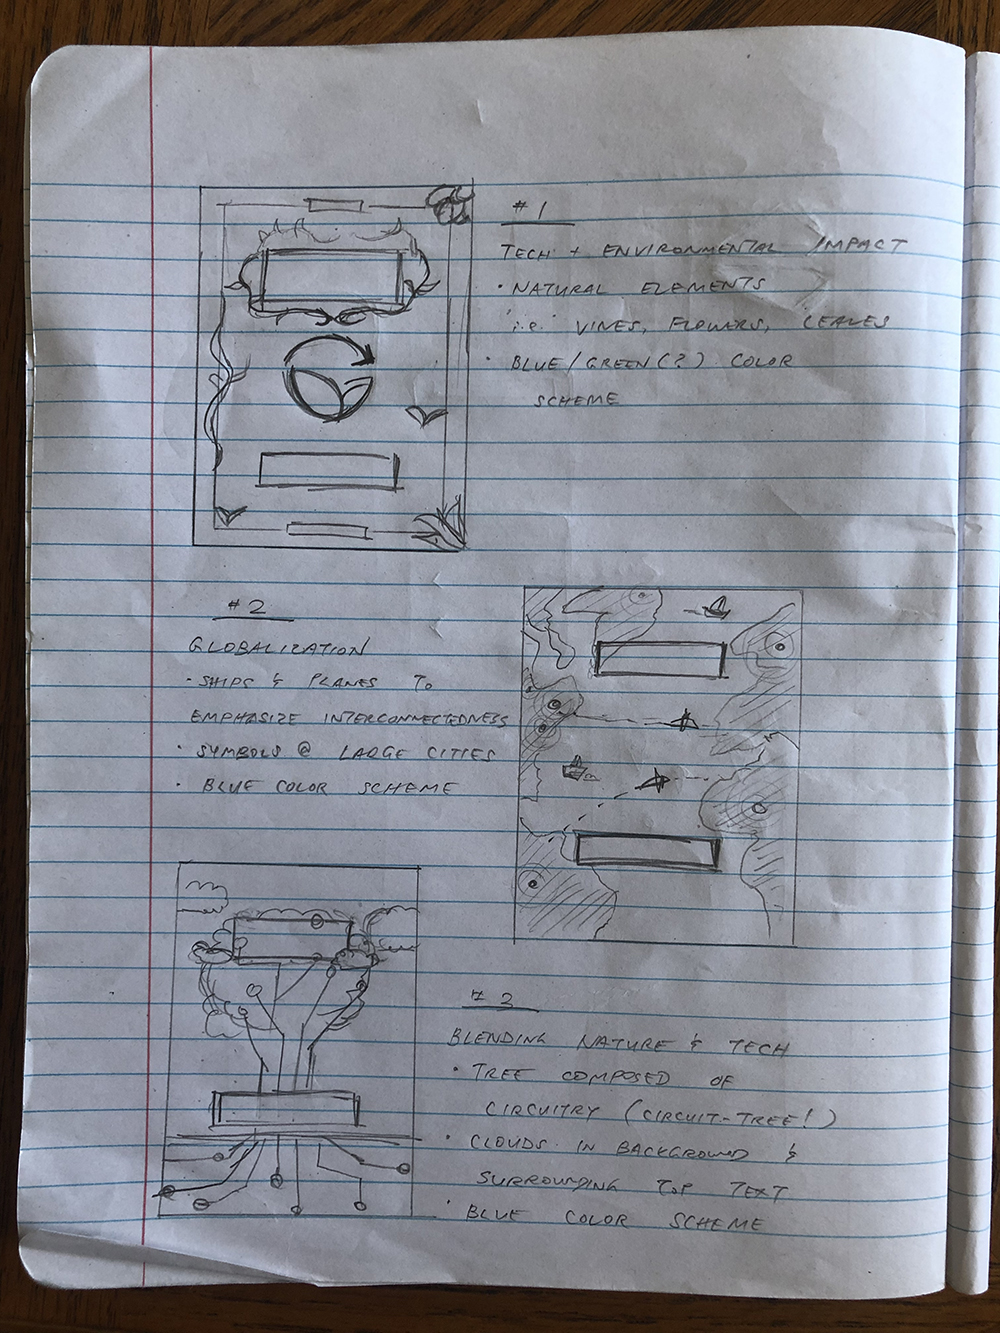 #1
TECH + ENVIRONMENTAL IMPACT
• NATURAL ELEMENTS
i.e. VINES, FLOWERS, LEAVES
• BLUE/GREEN(?) COLOR
SCHEME
#2
GLOBALIZATION
• SHIPS & PLANES TO
EMPHASIZE INTERCONNECTEDNESS
• SYMBOLS @ LARGE CITIES
• BLUE COLOR SCHEME
#3
BLENDING NATURE & TECH
• TREE COMPOSED OF
CIRCUITRY (CIRCUIT-TREE!)
• CLOUDS IN BACKGROUND &
SURROUNDING TOP TEXT
• BLUE COLOR SCHEME